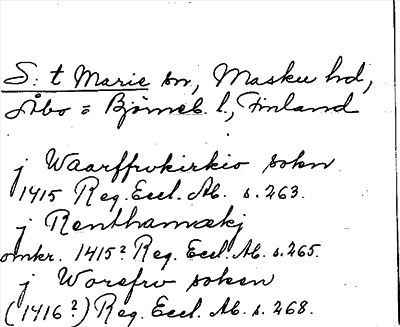 S:t Marie sn, Masku hd,
Åbo = Björneb. l., Finland
j Waarffrvkirkio sokn
1415 Reg. Eccl. Ab. s. 263.
j Renthamækj
omkr. 1415? Reg. Eccl. Ab. s. 265.
j Worefrv soken
(1416?) Reg. Eccl. Ab. s. 268.